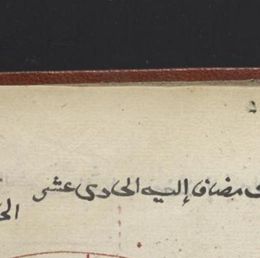 مضاف إليه الحادى عشر
الحا